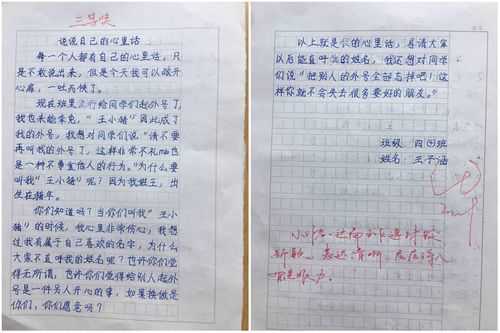 说说自己的心里话
每一个人都有自己的心里话,只
是不敢说出来,但是今天我可以敞开
心扉,一吐为快了。
现在班里流行给同学们起外号了,
我也未能幸免,“王小猪”因此成了
我的外号。我想对同学们说“请不要
再叫我的外号了,这样非常不礼貌也
是一种不尊重他人的行为。”为什么要
叫我“王小猪”呢?因为我姓王,出
生在猪年。
你们知道吗?当你们叫我“王小
猪”的时候,我心里非常伤心;我想
过我有属于自己喜欢的名字,为什么
大家不直呼我的姓名呢?也许你们觉
得无所谓,也许你们觉得给别人起外号
是一件另人开心的事,如果换做是
你们,你们愿意吗?
以上就是我的心里话,恳请大家
以后能直呼我的姓名,我还想对同学
们说“把别人的外号全部忘掉吧!这
样你就不会失去很多要好的朋友。”
班级 四(3)班
姓名:王子涵
小作者
新颖,表达清晰,